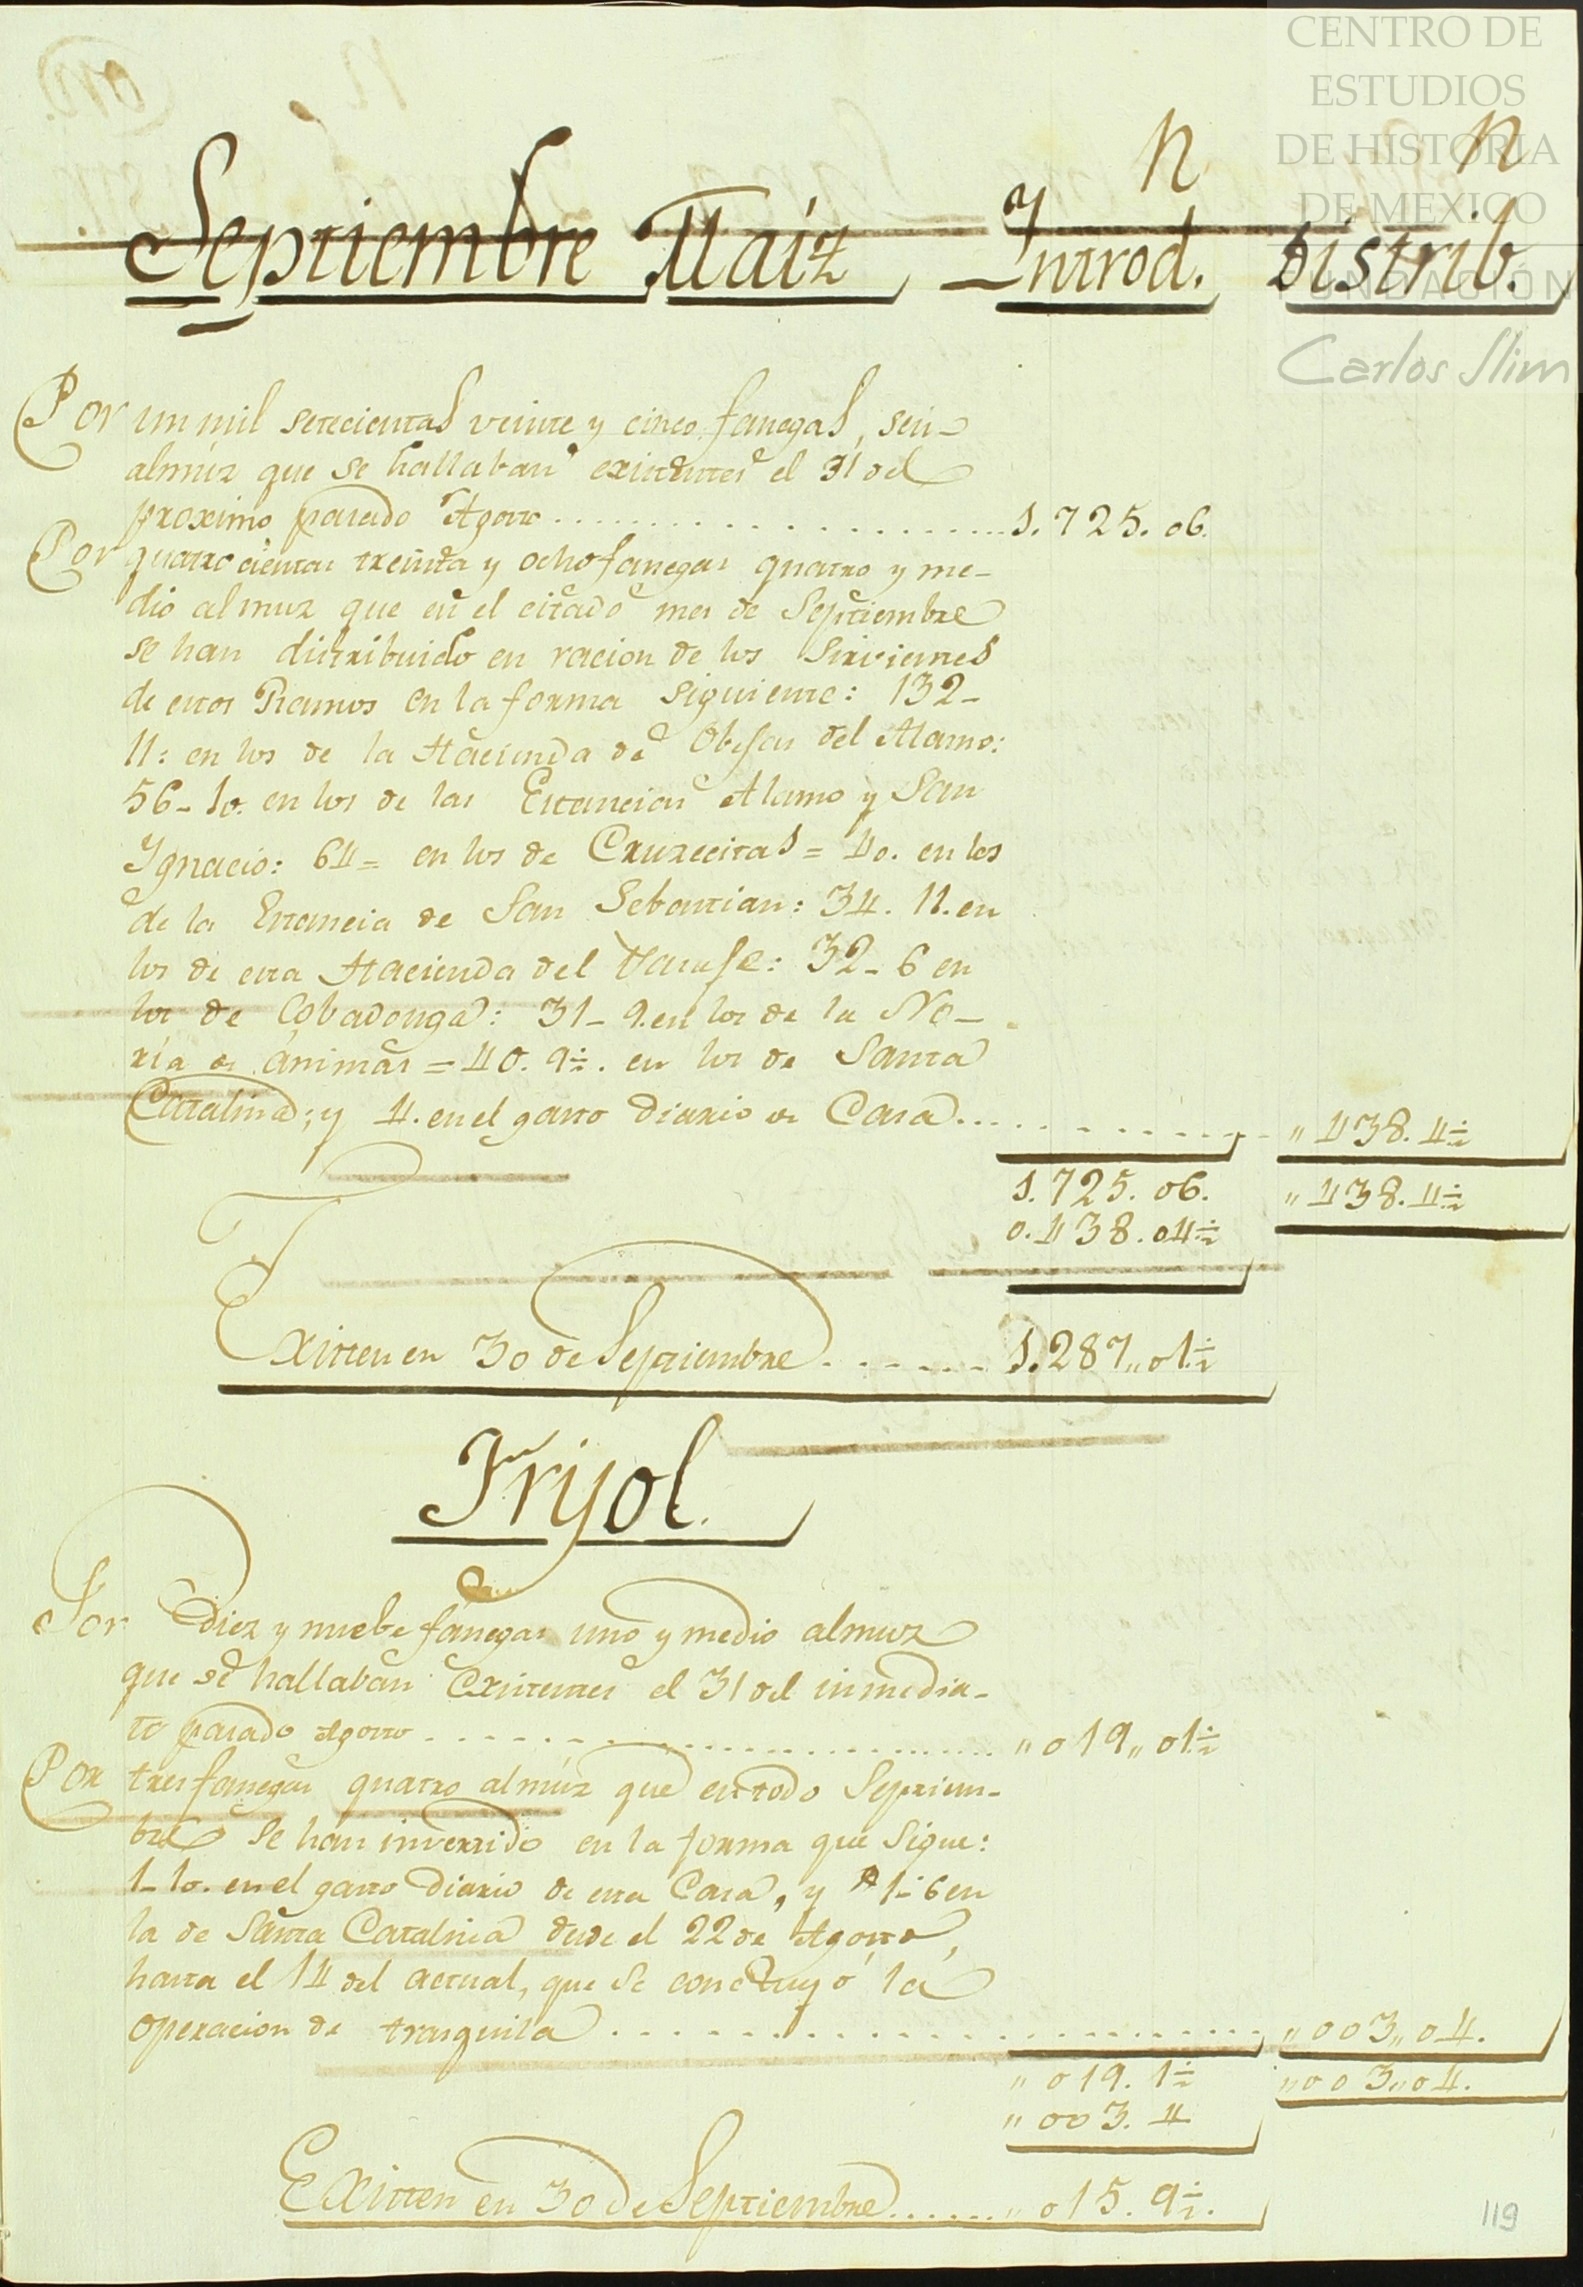 CENTRO DE
ESTUDIOS
DE HISTORIA
DE MEXICO
FUNDACIÓN
Carlos Slim
Septiembre Maíz Introd. Distrib.
Por un mil setecientas veinte y cinco fanegas, seis
almúz que se hallaban existentes el 31 del
proximo pasado Agosto 1.725.06.
Por quatrocientas treinta y ocho fanegas quatro y me-
dio almuz que en el citado mes de Septiembre
se han distribuido en racion de los Sirvientes
de estos Ramos en la forma siguiente: 132-
11: en los de la Hacienda de Obejas del Alamo:
56-10. en los de las Estancias Alamo y San
Ygnacio: 64= en los de Cruzecitas = 40. en los
de la Estancia de San Sebastian: 34. 11. en
los de esta Hacienda del 32-6 en
los de Cobadonga: 31-9. en los de la No-
ria de ánimas = 40. 9½. en los de Santa
Catalina; y 4. en el gasto diario de Casa ,, 438. 4½
1.725. 06. ,, 438. 4½
0.438.04½
Existen en 30 de Septiembre 1.287,,01½
Frijol.
Por Diez y nuebe fánegas uno y medio almuz
que se hallaban Existentes el 31 del inmedia-
to pasado Agosto ,, 019,, 01½
Por tres fanegas quatro almúz que en todo Septiem-
bre se hán invertido en la forma que sigue:
1-10. en el gasto Diario de esta Casa, y 1-6 en
la de Santa Catalina desde el 22 de Agosto,
hasta el 14 del actual, que se concluyó la
operacion de trasquila ,, 003,, 04.
,, 019. 1½ ,, 003,, 04.
,, 003. 4
Existen en 30 de Septiembre ,, 015. 9½.
119